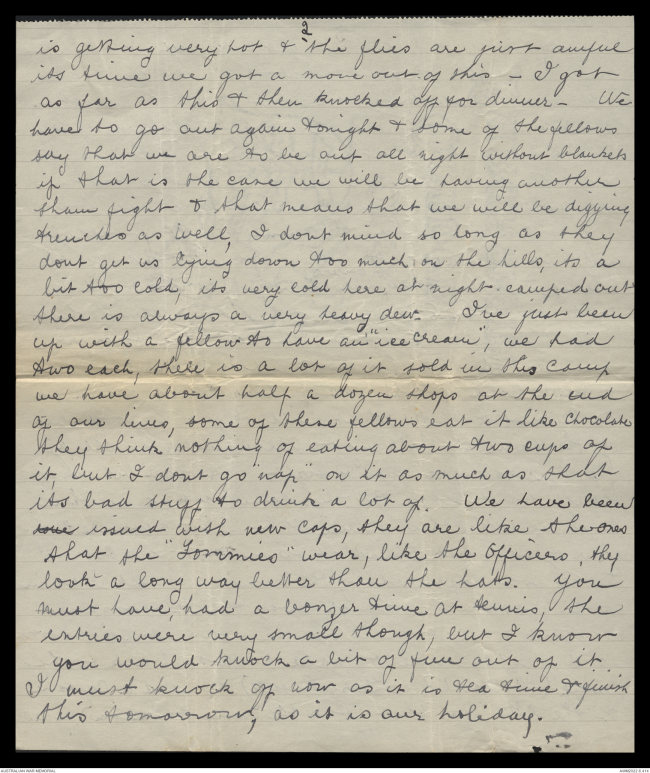 2
is getting very hot & the flies are just awful
its time we got a move out of this - I got
as far as this & then knocked off for dinner - We
have to go out again tonight & some of the fellows
say that we are to be out all night without blankets
if that is the case we will be having another
sham fight & that means that we will be digging
trenches as well, I dont mind so long as they
dont get us lying down too much on the hills, its a
bit too cold, its very cold here at night camped out
there is always a very heavy dew. I've just been
up with a fellow to have an "ice cream", we had
two each, there is a lot of it sold in this camp
we have about half a dozen shops at the end
of our lines, some of these fellows eat it like chocolate
they think nothing of eating about two cups of
it, but I dont go "nap" on it as much as that
its bad stuff to drink a lot of. We have been
issued with new caps, they are like the ones
that the "Tommies" wear, like the Officers, they
look a long way better than the hats. You
must have, had a bonzer time at tennis, the
entries were very small though, but I know
you would knock a bit of fun out of it.
I must knock off now as it is tea time & finish
this tomorrow, as it is our holiday.
AUSTRALIAN WAR MEMORIAL